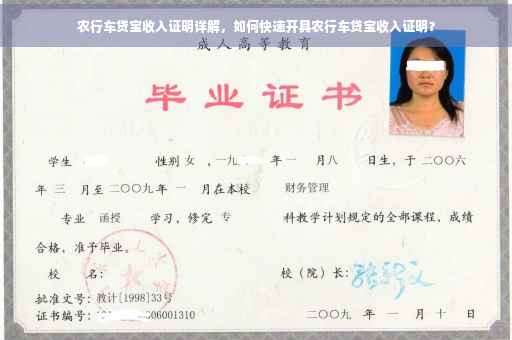 农行车贷宝收入证明详解，如何快速开具农行车贷宝收入证明？
成人高等教育
毕业证书
学生 性别 女 ，一九 年 一 月八 日生，于二〇〇六
年 三 月至二〇〇九年 一 月在本校 财务管理
专业 函授 学习，修完 专 科教学计划规定的全部课程，成绩
合格，准予毕业。
校 名： 校（院）长：
批准文号：教计[1998]33号
证书编号： 06001310 二〇〇九 年 一 月 十 日